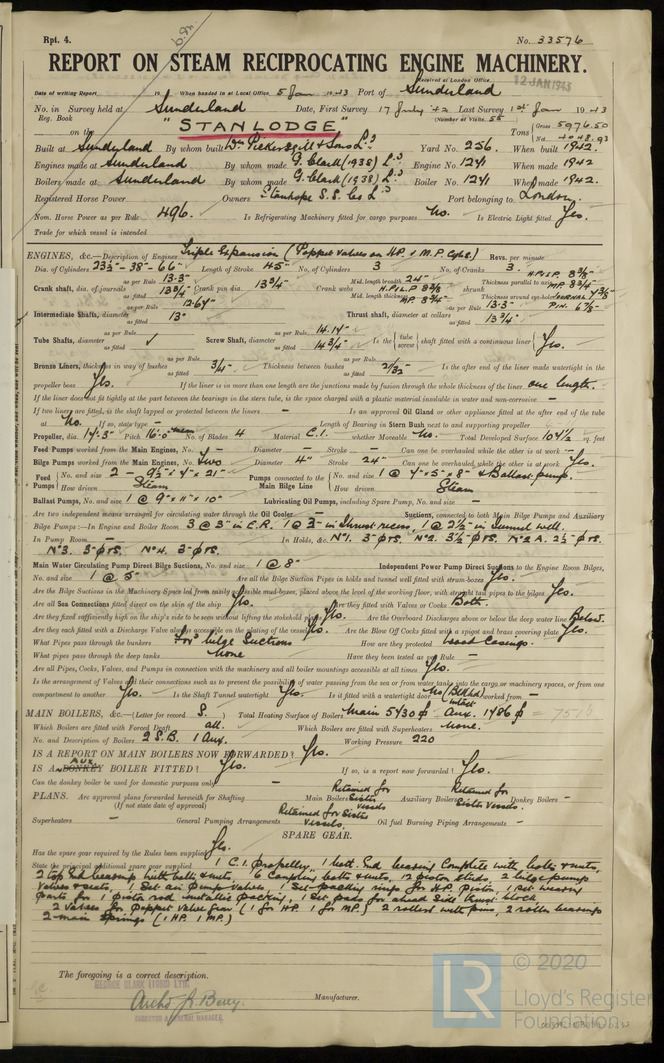 Rpt. 4. No. 33576
REPORT ON STEAM RECIPROCATING ENGINE MACHINERY.
Received at London Office 12 JAN 1943
Date of writing Report 19 When handed in at Local Office 5 Jan 1943 Port of Sunderland
No. in Survey held at Sunderland Date, First Survey 17 July 42 Last Survey 1st Jan 1943
Reg. Book (Number of Visits 55)
on the "STANLODGE" Tons Gross 5976.50
Built at Sunderland By whom built Wm Pickersgill & Sons Ld Yard No. 256 When built 1942
Engines made at Sunderland By whom made G. Clark (1938) Ld Engine No. 1241 When made 1942
Boilers made at Sunderland By whom made G. Clark (1938) Ld Boiler No. 1241 When made 1942.
Registered Horse Power Owners Stanhope S.S. Co Ld Port belonging to London.
Nom. Horse Power as per Rule 496. Is Refrigerating Machinery fitted for cargo purposes No. Is Electric Light fitted. Yes.
Trade for which vessel is intended.
ENGINES, &c.—Description of Engines Triple Expansion (Poppet Valves on H.P. & M.P. Cyls.) Revs. per minute
Dia. of Cylinders 23½"-38"-66" Length of Stroke 45" No. of Cylinders 3 No. of Cranks 3.
Crank shaft, dia. of journals as per Rule 13.3" as fitted 13¾" Crank pin dia. 13¾" Crank webs Mid. length breadth 24" Mid. length thickness shrunk Thickness parallel to axis Thickness around eye-hole
Intermediate Shafts, diameter as per Rule 12.67" as fitted 13" Thrust shaft, diameter at collars as per Rule 13.3" as fitted 13¾"
Tube Shafts, diameter as per Rule as fitted Screw Shaft, diameter as per Rule 14.14" as fitted 14¾" Is the tube screw shaft fitted with a continuous liner Yes.
Bronze Liners, thickness in way of bushes as per Rule as fitted 3/4" Thickness between bushes as per Rule as fitted 21/32" Is the after end of the liner made watertight in the
propeller boss Yes. If the liner is in more than one length are the junctions made by fusion through the whole thickness of the liner one length.
If the liner does not fit tightly at the part between the bearings in the stern tube, is the space charged with a plastic material insoluble in water and non-corrosive –
If two liners are fitted, is the shaft lapped or protected between the liners – Is an approved Oil Gland or other appliance fitted at the after end of the tube
No. If so, state type – Length of Bearing in Stern Bush next to and supporting propeller
Propeller, dia. 17'-3" Pitch 16'-0" mean No. of Blades 4 Material C.I. whether Moveable No. Total Developed Surface 104½ sq. feet
Feed Pumps worked from the Main Engines, No. – Diameter – Stroke – Can one be overhauled while the other is at work –
Bilge Pumps worked from the Main Engines, No. Two Diameter 4" Stroke 24" Can one be overhauled while the other is at work Yes.
Feed Pumps No. and size 2 – 9½" x 7" x 21" How driven Steam Pumps connected to the Main Bilge Line No. and size How driven Steam
Ballast Pumps, No. and size 1 @ 9" x 11" x 10" Lubricating Oil Pumps, including Spare Pump, No. and size –
Are two independent means arranged for circulating water through the Oil Cooler – Suctions, connected to both Main Bilge Pumps and Auxiliary
Bilge Pumps:—In Engine and Boiler Room 3 @ 3" in E.R. 1 @ 3" in Thrust recess, 1 @ 2½" in Tunnel well.
In Pump Room – In Holds, &c.
Main Water Circulating Pump Direct Bilge Suctions, No. and size 1 @ 8" Independent Power Pump Direct Suctions to the Engine Room Bilges,
No. and size 1 @ 5" Are all the Bilge Suction Pipes in holds and tunnel well fitted with strum-boxes Yes.
Are the Bilge Suctions in the Machinery Space led from easily accessible mud-boxes, placed above the level of the working floor, with straight tail pipes to the bilges Yes.
Are all Sea Connections fitted direct on the skin of the ship Yes. Are they fitted with Valves or Cocks Both.
Are they fixed sufficiently high on the ship's side to be seen without lifting the stokehold plates Yes. Are the Overboard Discharges above or below the deep water line Below.
Are they each fitted with a Discharge Valve always accessible on the plating of the vessel Yes. Are the Blow Off Cocks fitted with a spigot and brass covering plate Yes.
What Pipes pass through the bunkers For'd bilge Suctions How are they protected Wood Casings.
What pipes pass through the deep tanks None Have they been tested as per Rule –
Are all Pipes, Cocks, Valves, and Pumps in connection with the machinery and all boiler mountings accessible at all times Yes.
Is the arrangement of Valves and their connections such as to prevent the possibility of water passing from the sea or from water tanks into the cargo or machinery spaces, or from one
compartment to another Yes. Is the Shaft Tunnel watertight Yes. Is it fitted with a watertight door worked from –
MAIN BOILERS, &c.—(Letter for record S.) Total Heating Surface of Boilers Main 5430 Aux. 1486
Which Boilers are fitted with Forced Draft all. Which Boilers are fitted with Superheaters None.
No. and Description of Boilers 2 S.B. 1 Aux. Working Pressure 220
IS A REPORT ON MAIN BOILERS NOW FORWARDED? Yes.
IS A DONKEY AUX. BOILER FITTED? Yes. If so, is a report now forwarded? Yes.
Can the donkey boiler be used for domestic purposes only –
PLANS. Are approved plans forwarded herewith for Shafting Main Boilers Retained for Sister Vessels Auxiliary Boilers Retained for Sister Vessels. Donkey Boilers –
(If not state date of approval)
Superheaters – General Pumping Arrangements Retained for Sister Vessels. Oil fuel Burning Piping Arrangements –
SPARE GEAR.
Has the spare gear required by the Rules been supplied Yes.
State the principal additional spare gear supplied 1 C.I. propeller, 1 bott. End bearing Complete with bolts & nuts,
2 top End bearings with bolts & nuts, 6 Coupling bolts & nuts, 12 piston studs, 2 bilge pump
valves & seats, 1 Set air Pump Valves, 1 Set packing rings for H.P. Piston, 1 set wearing
parts for 1 piston rod metallic packing, 1 Set pads for ahead Side thrust block
2 Valves for Poppet valve gear (1 for HP. 1 for MP.) 2 rollers with pins, 2 roller bearings
2 main Springs (1 HP. 1 MP.)
The foregoing is a correct description.
GEORGE CLARK (1938) LTD.
Manufacturer.
DIRECTOR & GENERAL MANAGER.
© 2020
LR Lloyd's Register
Foundation